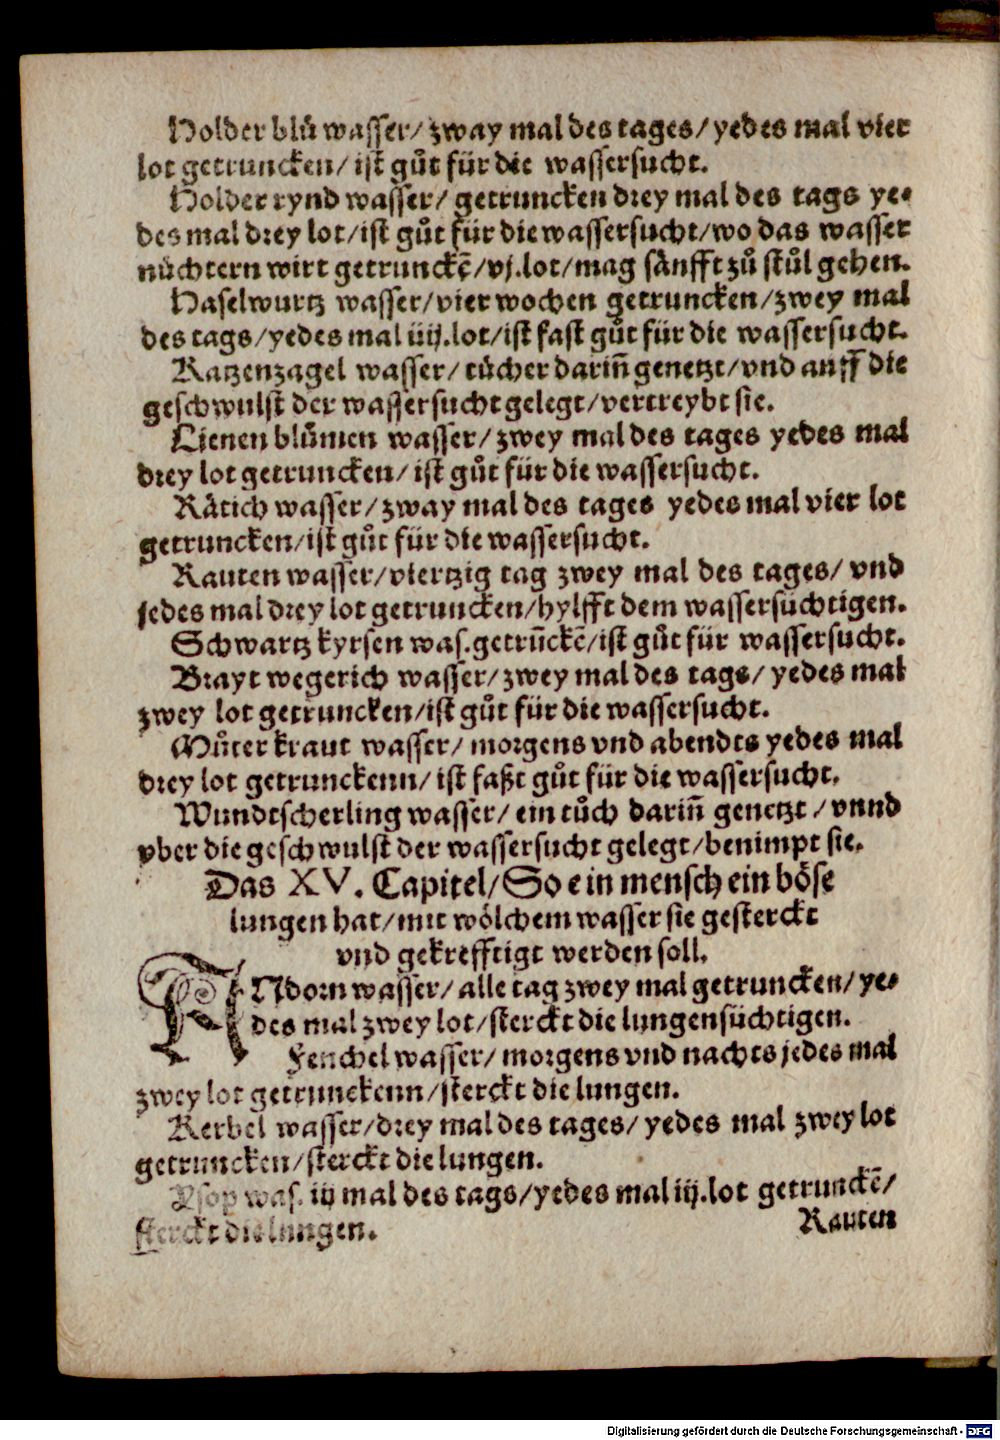 Holder blů wasser/ zway mal des tages/ yedes mal vier
lot getruncken/ ist gůt für die wassersucht.
Holder rynd wasser/ getruncken drey mal des tags ye-
des mal drey lot/ist gůt für die wassersucht/wo das wasser
nůchtern wirt getrunckē/vj.lot/mag sånfft zů stůl gehen.
Haselwurtz wasser/vier wochen getruncken/zwey mal
des tags/yedes mal iiij.lot/ist fast gůt für die wassersucht.
Katzenzagel wasser/ tůcher dariñ genetzt/vnd auff die
geschwulst der wassersucht gelegt/vertreybt sie.
Lienen blůmen wasser/zwey mal des tages yedes mal
drey lot getruncken/ ist gůt für die wassersucht.
Råtich wasser/zway mal des tages yedes mal vier lot
getruncken/ist gůt für die wassersucht.
Rauten wasser/viertzig tag zwey mal des tages/ vnd
jedes mal drey lot getruncken/hylfft dem wassersüchtigen.
Schwartz kyrsen was.getrūckē/ist gůt für wassersucht.
Brayt wegerich wasser/zwey mal des tags/ yedes mal
zwey lot getruncken/ist gůt für die wassersucht.
Můter kraut wasser/ morgens vnd abendts yedes mal
drey lot getrunckenn/ ist faßt gůt für die wassersucht.
Wundtscherling wasser/ ein tůch dariñ genetzt /vnnd
vber die geschwulst der wassersucht gelegt/benimpt sie.
Das XV. Capitel/So ein mensch ein böse
lungen hat/mit wölchem wasser sie gesterckt
vnd gekrefftigt werden soll.
ANdorn wasser/ alle tag zwey mal getruncken/ ye-
des mal zwey lot/sterckt die lungensüchtigen.
Fenchel wasser/ morgens vnd nachts jedes mal
zwey lot getrunckenn/sterckt die lungen.
Kerbel wasser/drey mal des tages/ yedes mal zwey lot
getruncken/sterckt die lungen.
Ysop was. iij mal des tags/yedes mal iij.lot getrunckē/
sterckt die lungen.
Rauten
Digitalisierung gefördert durch die Deutsche Forschungsgemeinschaft - DFG